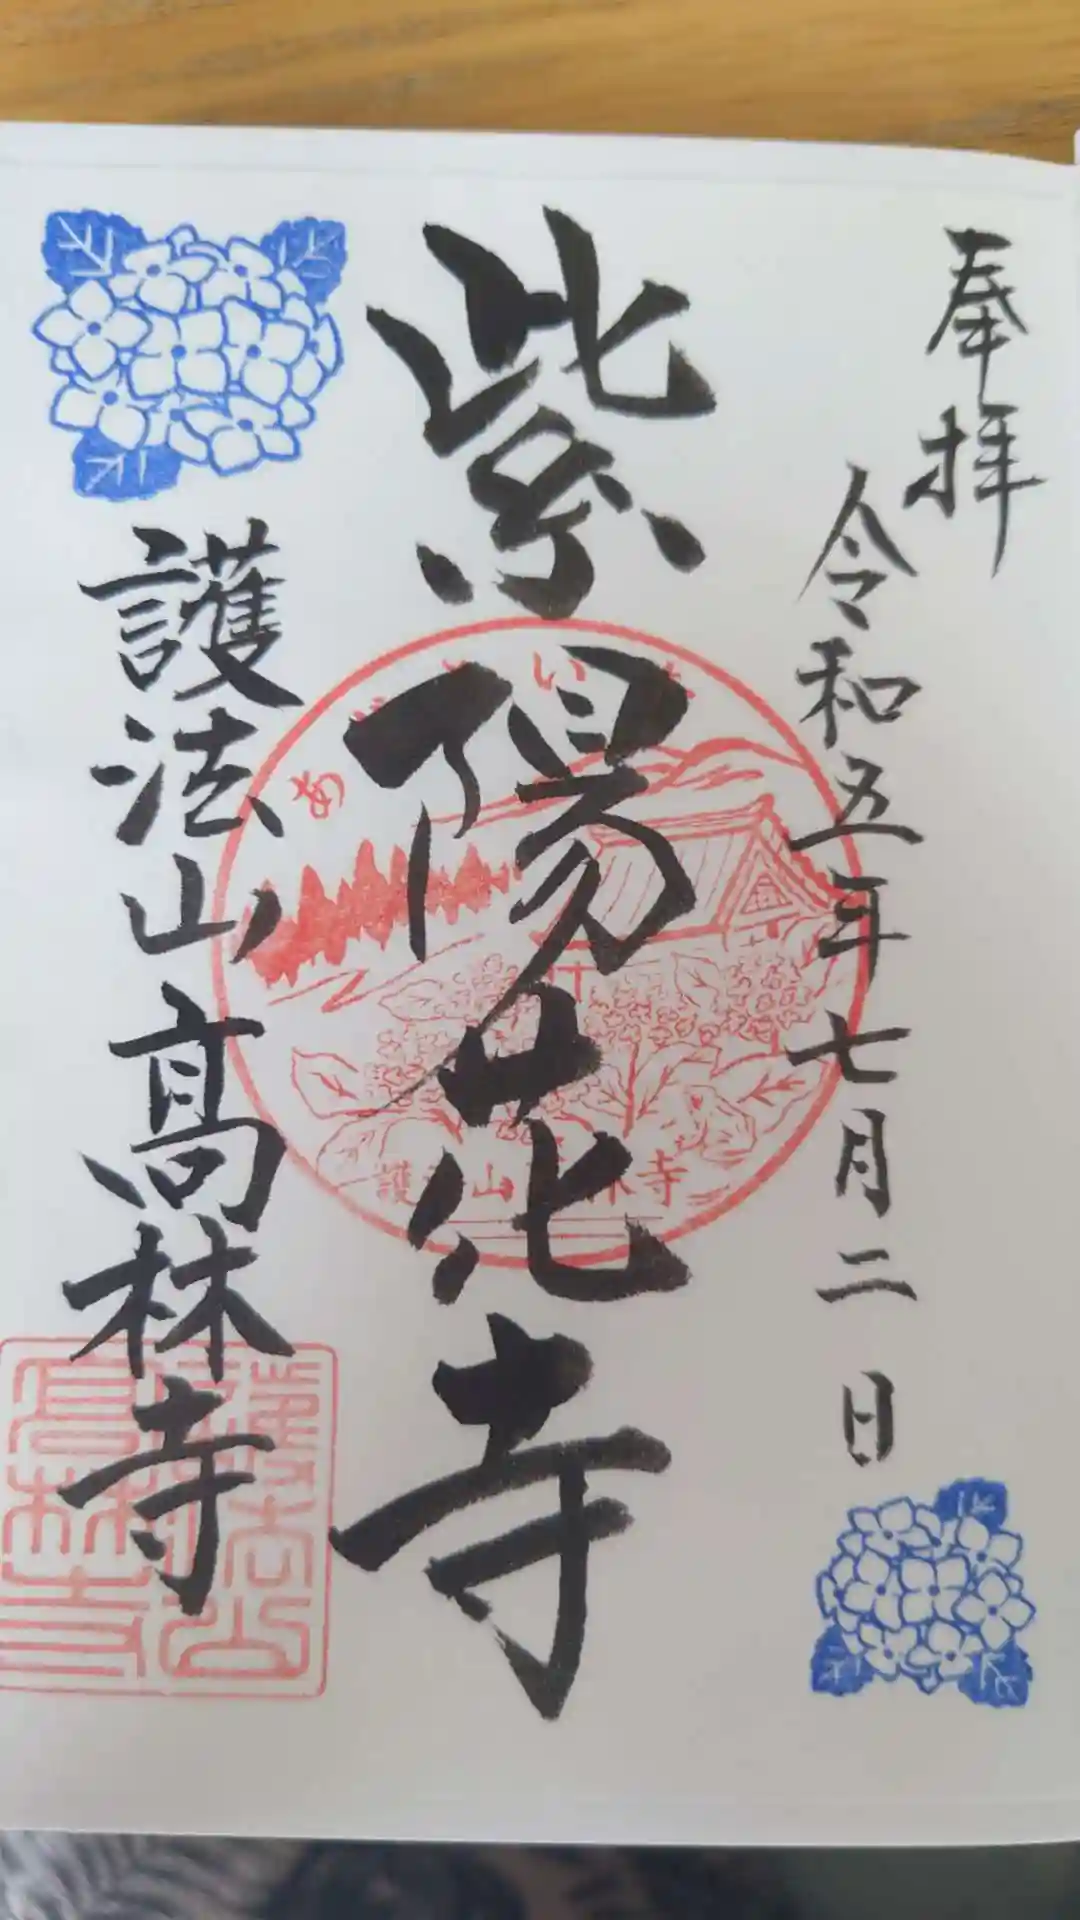 奉拝
令和五年七月二日
紫陽花寺
護法山高林寺
護法山高林寺